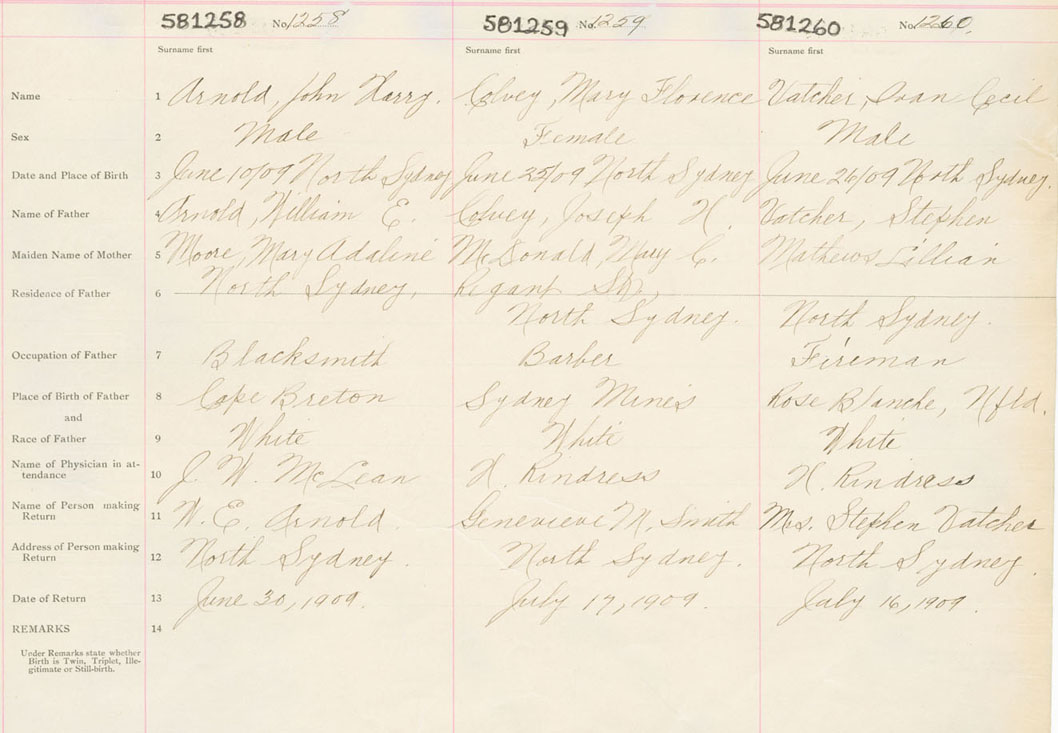 581258 No. 1258 581259 No. 1259 581260 No. 1260.
Surname first Surname first Surname first
Name 1 Arnold, John Harry. Colvey, Mary Florence Vatcher, Ivan Cecil
Sex 2 Male Female Male
Date and Place of Birth 3 June 10/09 North Sydney June 25/09 North Sydney June 26/09 North Sydney.
Name of Father 4 Arnold, William E. Colvey, Joseph H. Vatcher, Stephen
Maiden Name of Mother 5 Moore, Mary Adaline McDonald, Mary C. Mathews Lillian
Residence of Father 6 North Sydney, Regant
North Sydney. North Sydney.
Occupation of Father 7 Blacksmith Barber Fireman
Place of Birth of Father 8 Cape Breton Sydney Mines Rose Blanche, Nfld.
and
Race of Father 9 White White White
Name of Physician in at-
tendance 10 J. W. McLean H. Rindress H. Rindress
Name of Person making
Return 11 W. E. Arnold. Genevieve M. Smith Mrs. Stephen Vatcher
Address of Person making
Return 12 North Sydney. North Sydney. North Sydney.
Date of Return 13 June 30, 1909. July 17, 1909. July 16, 1909.
REMARKS 14
Under Remarks state whether
Birth is Twin, Triplet, Ille-
gitimate or Still-birth.